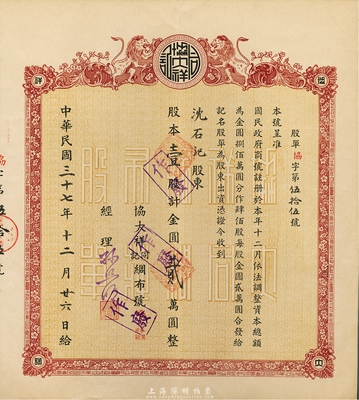 股單協字第伍拾伍號
本號呈准
國民政府商號註册於本年十二月依法調整資本總額
為金圓捌佰萬圓分作肆佰股每股金圓貳萬圓合發給
記名股單為股東出資憑證今收到
沈石記股東
股本壹股計金圓貳萬圓整
協大祥記綢布號
經理
中華民國三十七年十二月廿六日給
作廢
作廢
協
大
祥
上海陽明拍賣